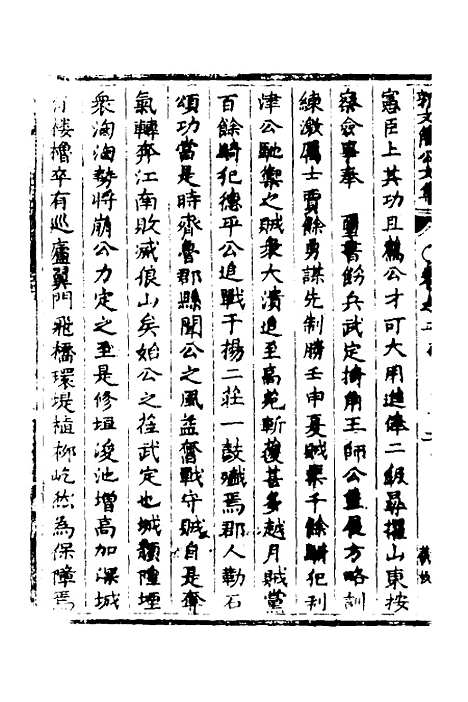 憲臣上其功且薦公才可大用進俸二級尋擢山東按
察僉事奉　璽書飭兵武定掎角王師公益展方略訓
練激厲士賈餘勇謀先制勝壬申夏賊衆千餘騎犯利
津公馳禦之賊衆大潰追至高苑斬獲甚多越月賊黨
百餘騎犯德平公追戰于揚二莊一鼓殲焉郡人勒石
頌功當是時齊魯郡縣聞公之風益奮戰守賊自是奪
氣轉奔江南敗滅狼山矣始公之莅武定也城頹隍堙
衆洶洶勢將崩公力定之至是修垣浚池增高加深城
有偻櫓卒有巡廬翼門飛橋環堤植柳屹然為保障焉